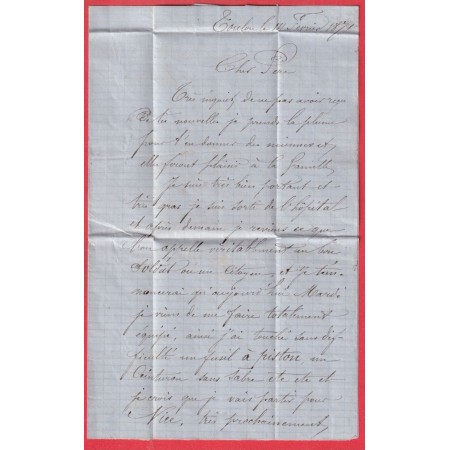 Toulon le 14 Février 1871
Cher Père
Très inquiet de ne pas avoir reçu
de tes nouvelle je prends la plume
pour t'en donner des miennes et
elle feront plaisir à la famille
Je suis très bien portant et
très gras je suis sorti de l'hôpital
et après demain je reviens ce que
l'on appelle véritablement un
soldat ou un citoyen, et je
qu'aujourd'hui Mardi
je viens de me faire totalement
équipé, ainsi j'ai touché sans dif-
ficulté un fusil à pistons un
Ceinturon sans sabre etc etc et
je crois que je vais partir pour
Nice, très prochainement